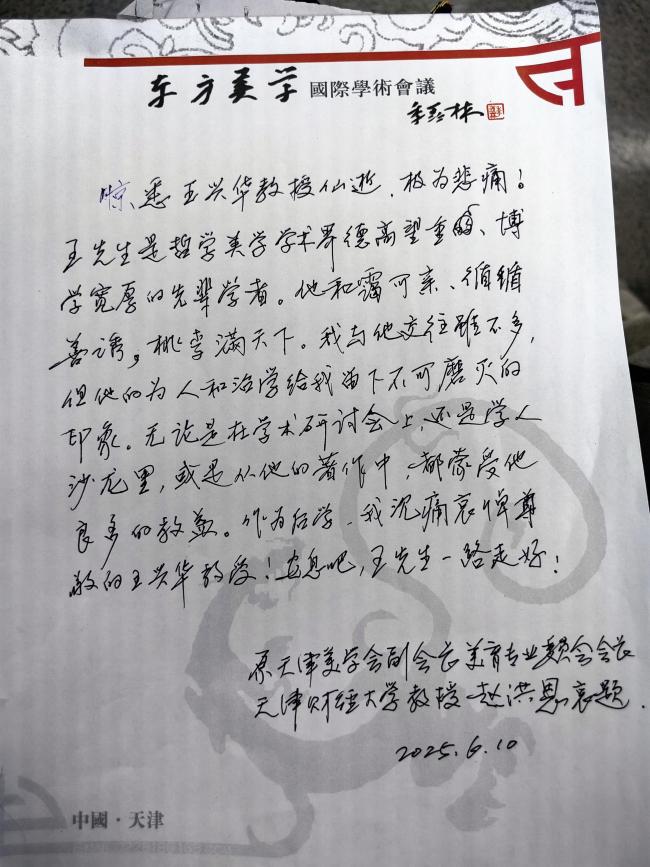 东方美学 國際學術會議
季羡林
惊悉王兴华教授仙逝，极为悲痛！
王先生是哲学美学学术界德高望重的、博
学宽厚的先辈学者。他和霭可亲、循循
善诱，桃李满天下。我与他交往虽不多，
但他的为人和治学给我留下不可磨灭的
印象。无论是在学术研讨会上，还是学人
沙龙里，或是从他的著作中，都蒙受他
良多的教益。作为后学，我沉痛哀悼尊
敬的王兴华教授！安息吧，王先生一路走好！
原天津美学会副会长美育专业委员会会长
天津财经大学教授 赵洪恩哀题.
2025.6.10
中國·天津